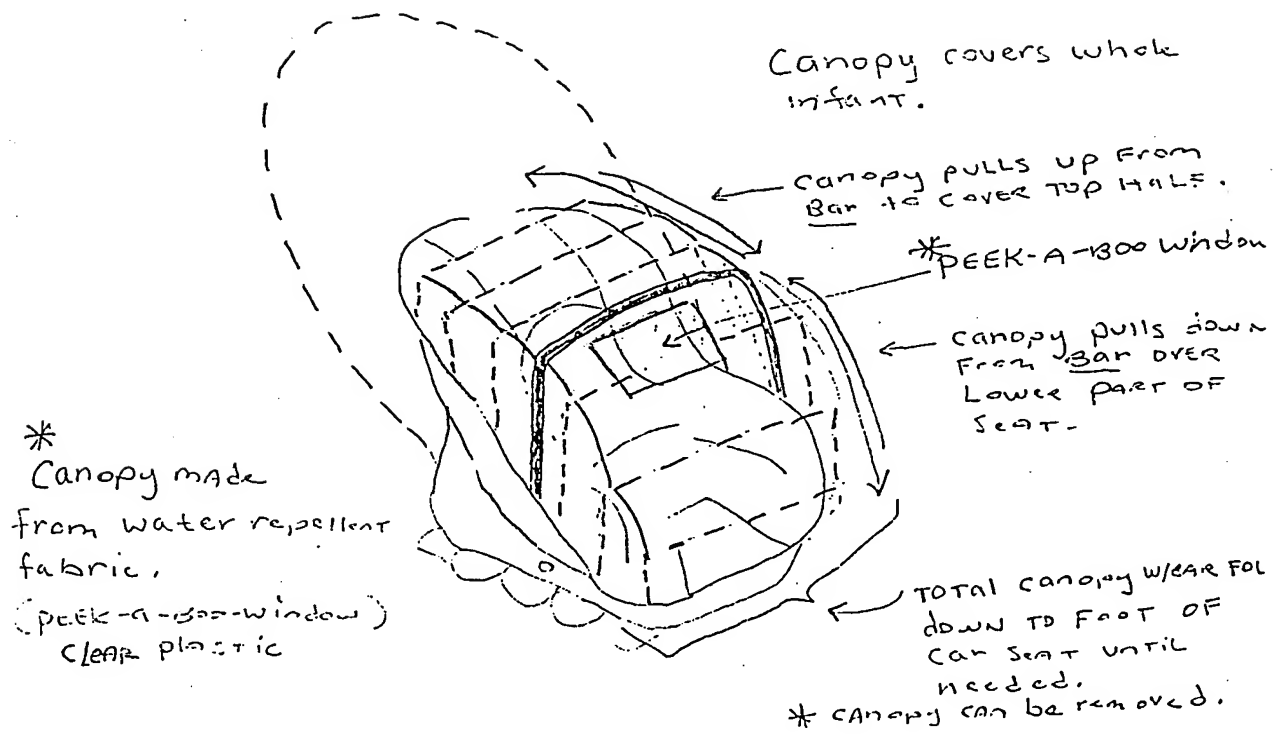 Canopy covers whole
infant.
canopy PULLS UP From
Bar to COVER TOP HALF.
*PEEK-A-BOO WINDOW
canopy pulls down
From Bar OVER
Lower PART OF
SEAT.
*
Canopy made
from water repellent
fabric.
(PEEK-A-BOO-window)
CLEAR PLASTIC
TOTAL canopy W/EAR FOL
down TO FOOT OF
Car SEAT UNTIL
needed.
* CANOPY CAN be removed.